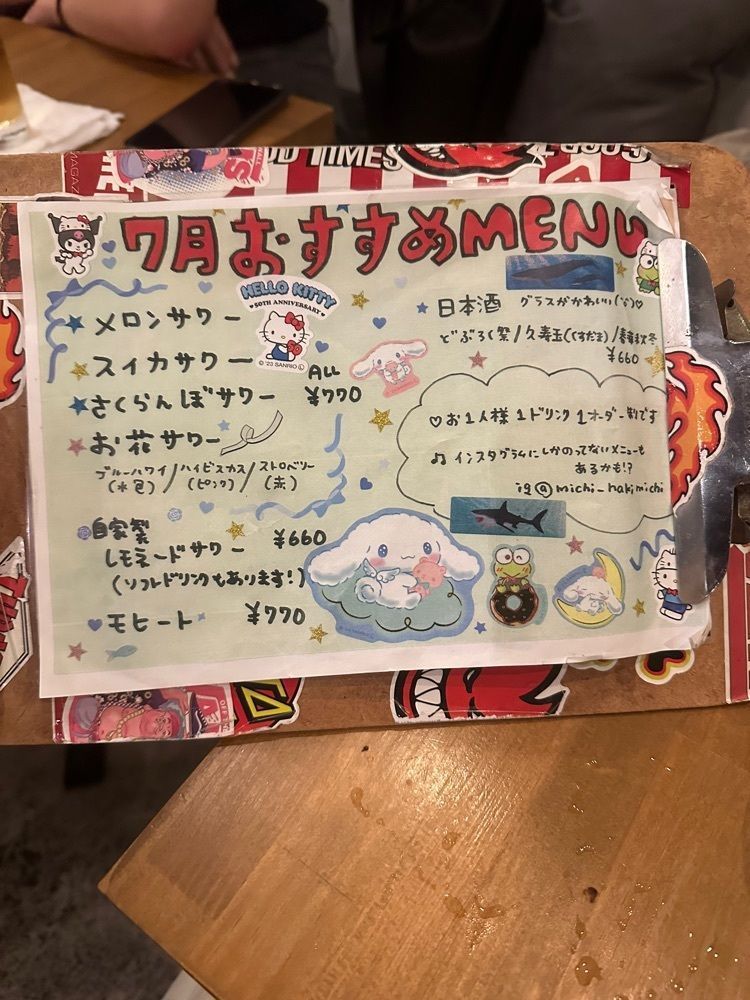 OD TIMES
7月おすすめMENU
HELLO KITTY
50TH ANNIVERSARY
©'23 SANRIO
メロンサワー
スイカサワー
さくらんぼサワー
ALL
¥770
お花サワー
ブルーハワイ/ハイビスカス/ストロベリー
(水色) (ピンク) (赤)
自家製
レモネードサワー ¥660
(ソフトドリンクもあります!)
モヒート ¥770
日本酒 グラスがかわいい
どぶろく祭/久寿玉(くすだま)/春夏秋冬
¥660
お1人様1ドリンク1オーダー制です
インスタグラムにしかのってないメニューも
あるかも!?
ig@michi_hakimichi